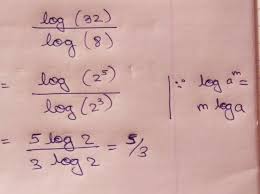 log (32)
log (8)
= log (2⁵)
log (2³)
∵ log aᵐ =
m log a
= 5 log 2
3 log 2
= 5/3